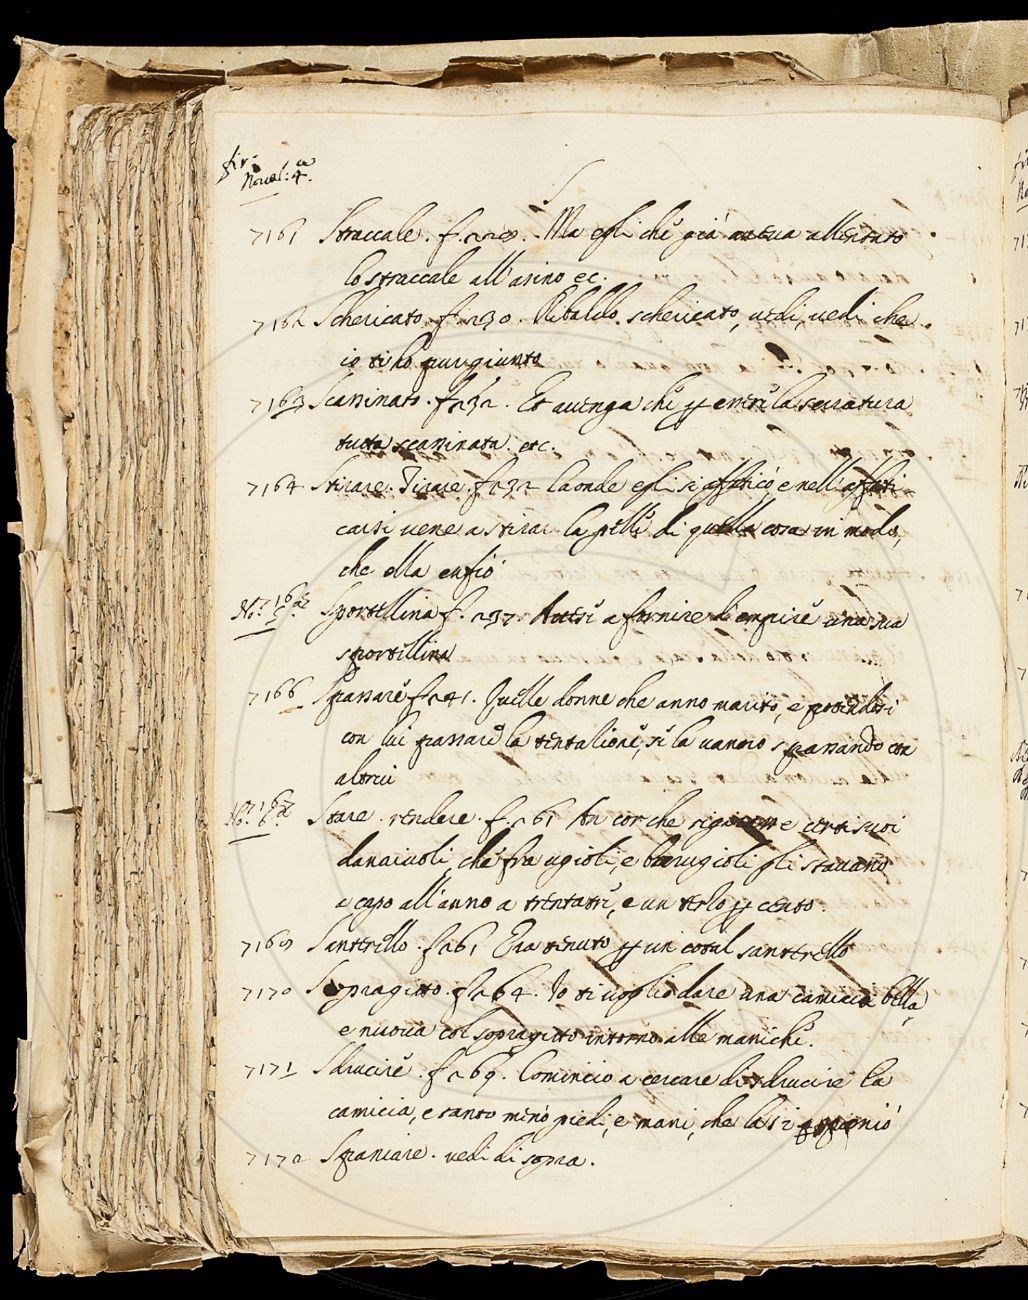 fir:
Novel: 4.ª
S
7161 Straccale. f. 228. Ma egli che già avea allentato
lo straccale all'asino ec.
7162 Schericato. f. 230. Ribaldo schericato, vedi, vedi che
io ti ho pur giunto
7163 Scassinato. f. 232. Et avenga che p essere la serratura
tutta scassinata. etc.
7164 Stirare. Tirare. f. 232 laonde egli si affaticò, e nell'affati
carsi venne a stirar la pelle di quella cosa in modo,
che ella enfiò
Sportellina f. 237. Attese a fornire d'empire una sua
sportellina
7166 Spassare f. 241. Quelle donne che anno marito, e potendosi
con lui passare la tentatione, se la vanno spassando con
altrui
Stare. rendere. f. 261 An cor che certi suoi
danaiuoli che fra ugioli, e barugioli gli stavano
a capo all'anno a trentatre, e un terzo p cento.
7169 Santerello. f. 261 Era tenuto p un cotal santerello
7170 Sopragitto. f. 264. Io ti voglio dare una camicia bella,
e nuova col sopragitto intorno alle maniche.
7171 Sdrucire. f. 269. Cominciò a cercare di sdrucire la
camicia, e tanto menò piedi, e mani, che la si
7172 Spaniare. vedi di sopra.